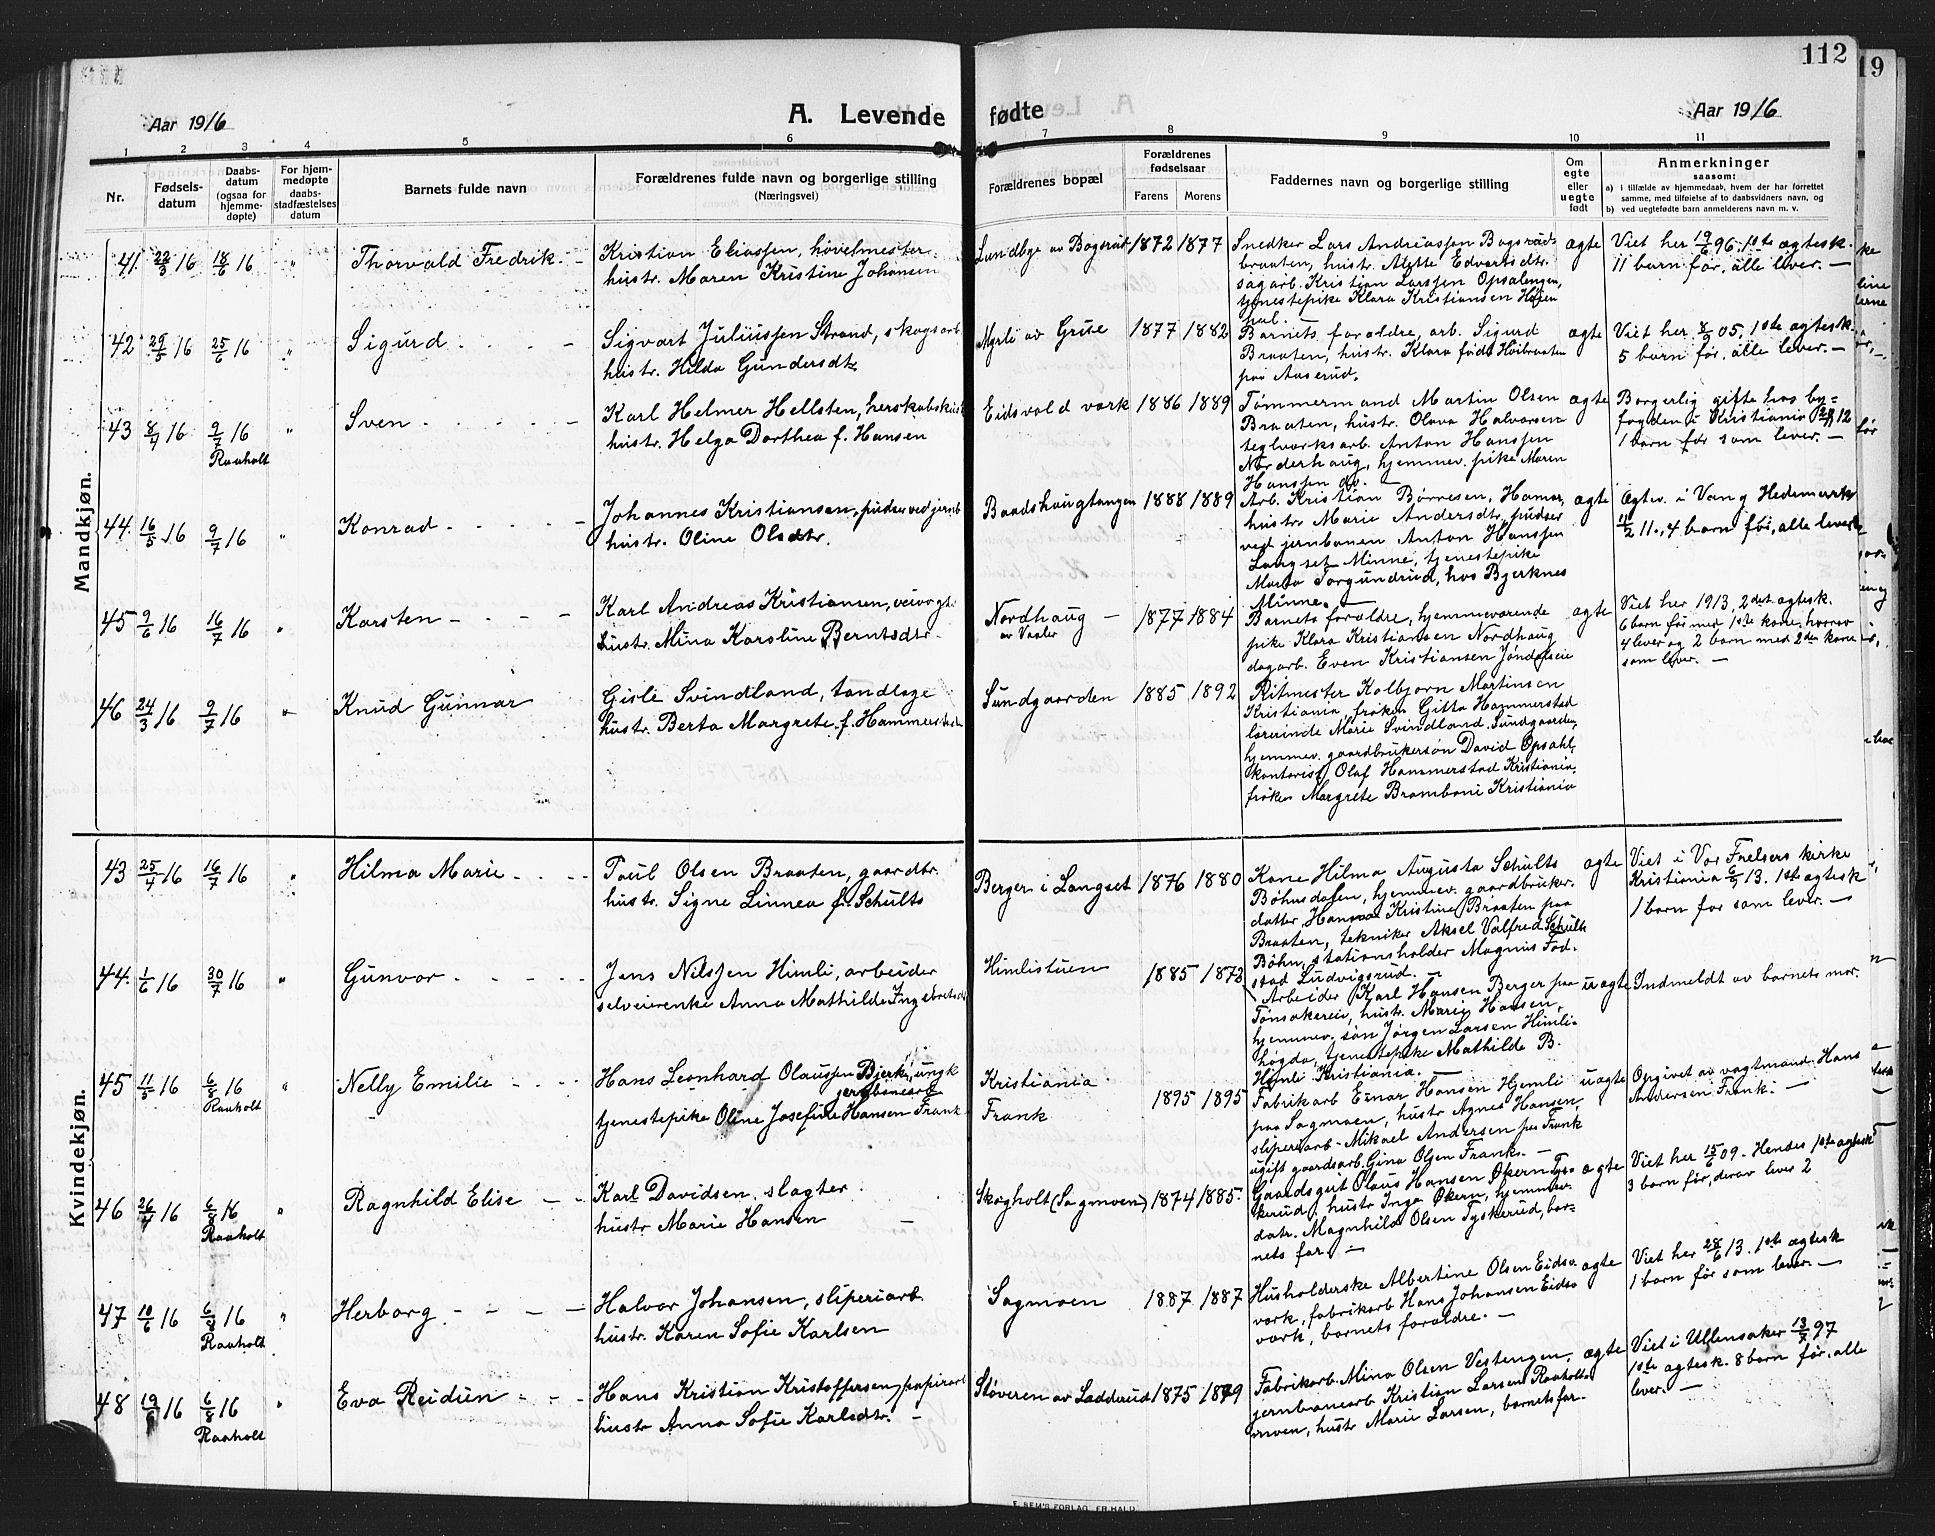 112
19
Aar 1916
A. Levende fødte
Aar 1916
1 2 3 4 5 6 7 8 9 10 11
Nr.
Fødsels-
datum
Daabs-
datum
(ogsaa for
hjemme-
døpte)
For hjem-
medøpte
daabs-
stadfæstelses
datum
Barnets fulde navn
Forældrenes fulde navn og borgerlige stilling
(Næringsvei)
Forældrenes bopæl
Forældrenes
fødselsaar
Farens Morens
Faddernes navn og borgerlige stilling
Om
egte
eller
uegte
født
Anmerkninger
saasom:
a) i tilfælde av hjemmedaab, hvem der har forrettet
samme, med tilføielse af to daabsvidners navn, og
b) ved uegtefødte barn anmelderens navn m. v.
Mandkjøn.
41 22/3 16 18/6 16 " Thorvald Fredrik
Kristian Eliassen, høvelmester
hustr. Maren Kristine Johansen
Lundbye av Bogsrud 1872 1877
Snedker Lars Andreassen Bogsruds-
braaten, hustr. Alette Edvartsdtr.
sagarb. Kristian Larssen Opsalengen,
tjenestepike Klara Kristiansen
ægte
Viet her 19/6 96. 1ste ægtesk.
11 barn før, alle lever. —
42 29/5 16 25/6 16 " Sigurd
Sigvart Juliussen Strand, skogsarb
hustr. Hilda Gundersdtr.
Myrli av Grise 1877 1882
Barnets forældre, arb. Sigurd
Braaten, hustr. Klara født Høibraaten
paa Aaserud.
ægte
Viet her 8/9 05, 1ste ægtesk.
5 barn før, alle lever. —
43 8/4 16 9/7 16 " Sven
Raaholt
Karl Helmer Hellsten, herskabskusk
hustr. Helga Dorthea f. Hansen
Eidsvold værk 1886 1889
Tømmermand Martin Olsen
Braaten, hustr. Olava Halvorsen
teglverksarb. Anton Hanssen
Norderhaug, hjemmev. pike Maren
Hanssen do. —
ægte
Borgerlig gifte hos by=
fogden i Kristiania 12
1 barn før som lever. —
44. 16/5 16 9/7 16 " Konrad
Johannes Kristiansen, pudser ved jernb
hustr. Oline Olsdtr.
Baadshaugtangen 1888 1889
Arb. Kristian Børresen, Hamar,
hustr. Marie Andersdtr, pudser
ved jernbanen Anton Hanssen
Langset Minne, tjenestepike
Marta Torgundrud, hos Bjerknes
Minne. —
ægte
Ægtev. i Vang Hedemark
11/2 11., 4 barn før, alle lever
45 9/6 16 16/7 16 " Karsten
Karl Andreas Kristiansen, veivogte
hustr. Mina Karoline Berntsdtr.
Nordhaug —
av Vaaler
1877 1884
Barnets forældre, hjemmeværende
pike Klara Kristiansen Nordhaug
dagarb. Even Kristiansen Jøndalseie
ægte
Viet her 1913, 2det ægtesk.
6 barn før med 1ste kone, hvorav
4 lever og 2 barn med 2den kone
som lever. —
46 24/3 16 9/7 16 " Knud Gunnar
Gisle Svindland, tandlæge
hustr. Berta Margrete f. Hammerstad
Sundgaarden 1885 1892
Ritmester Kolbjørn Martinsen
Kristiania, frøken Gitta Hammerstad
lærerinde Marie Svindland Sundgaarden,
hjemmev. gaardbrukersøn David Opsahl,
kontorist Olaf Hammerstad Kristiania,
frøken Margrete Bramboni Kristiania
Kvindekjøn.
43 25/4 16 16/7 16 " Hilma Marie
Paul Olsen Braaten, gaardtr.
hustr. Signe Linnea f. Schults
Berger i Langset 1876 1880
Kone Hilma Augusta Schults
Bøhnsdalen, hjemmev. gaardbruker-
datter Hanna Kristine Braaten paa
Braaten, tekniker Aksel Valfred Schults
Bøhn, stationsholder Magnus Fod-
stad Ludvigsrud. —
ægte
Viet i Vor Frelsers kirke
Kristiania 6/9 13. 1ste ægtesk
1 barn før som lever. —
44. 1/6 16 30/7 16 " Gunvor
Jens Nilssen Himli, arbeider
selveierenke Anna Mathilde Ingebretsdtr
Himlistuen 1885 1873
Arbeider Karl Hansen Berger paa
Tønsakereie, hustr. Marie Hansen,
hjemmev. søn Jørgen Larsen Himli-
høgda, tjenestepike Mathilde B.
Himli Kristiania. —
uægte
Indmeldt av barnets mor.
45 11/5 16 6/8 16 " Nelly Emilie
Raaholt
Hans Leonhard Olaussen Bjerke, ungk
jernbanearb
tjenestepike Oline Josefine Hansen Frank
Kristiania
Frank
1895 1895
Fabrikarb Einar Hansen Hjemli
paa Sagmoen, hustr Agnes Hansen,
sliperiarb. Mikael Andersen paa Frank
ugift gaardsarb. Gina Olsen Frank. —
uægte
Opgivet av vagtmand Hans
Andersen Frank. —
46 26/4 16 6/8 16 " Ragnhild Elise
Raaholt
Karl Davidsen, slagter
hustr Marie Hansen —
Skogholt (Sagmoen) 1874 1885.
Gaardsgut Olaus Hansen Økern Tys-
kerud, hustr Inga Økern, hjemmev.
datr. Magnhild Olsen Tyskerud, bar=
nets far. —
ægte
Viet her 15/6 09. Hendes 1ste ægtesk
3 barn før, derav lever 2
47 10/6 16 6/8 16 " Herborg
Raaholt
Halvor Johansen, sliperiarb
hustr. Karen Sofie Karlsen
Sagmoen 1887 1887
Husholderske Albertine Olsen Eidsv.
værk, fabrikarb Hans Johansen Eidsv
værk, barnets forældre. —
ægte
Viet her 28/6 13. 1ste ægtesk
1 barn før som lever. —
48 19/6 16 6/8 16 " Eva Reidun
Raaholt
Hans Kristian Kristoffersen, papirarb
hustr Anna Sofie Karlsdtr. —
Støveren av Ladderud 1875 1879
Fabrikarb. Mina Olsen Vestengen,
jernbanearb Kristian Larsen Raaholt-
moen, hustr Marie Larsen, barnets far.
ægte
Viet i Ullensaker 13/7 97
1ste ægtesk. 8 barn før, alle
lever. —
E. SEM'S FORLAG, FR.HALD.